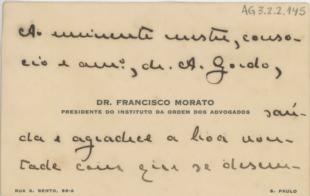 AG3.2.2.145
Ao eminente mestre, conso-
cio e am.º, dr. A. Gordo,
DR. FRANCISCO MORATO
PRESIDENTE DO INSTITUTO DA ORDEM DOS ADVOGADOS
saú-
da e agradece a boa von-
tade com que se desem-
RUA S. BENTO, 59-A
S. PAULO